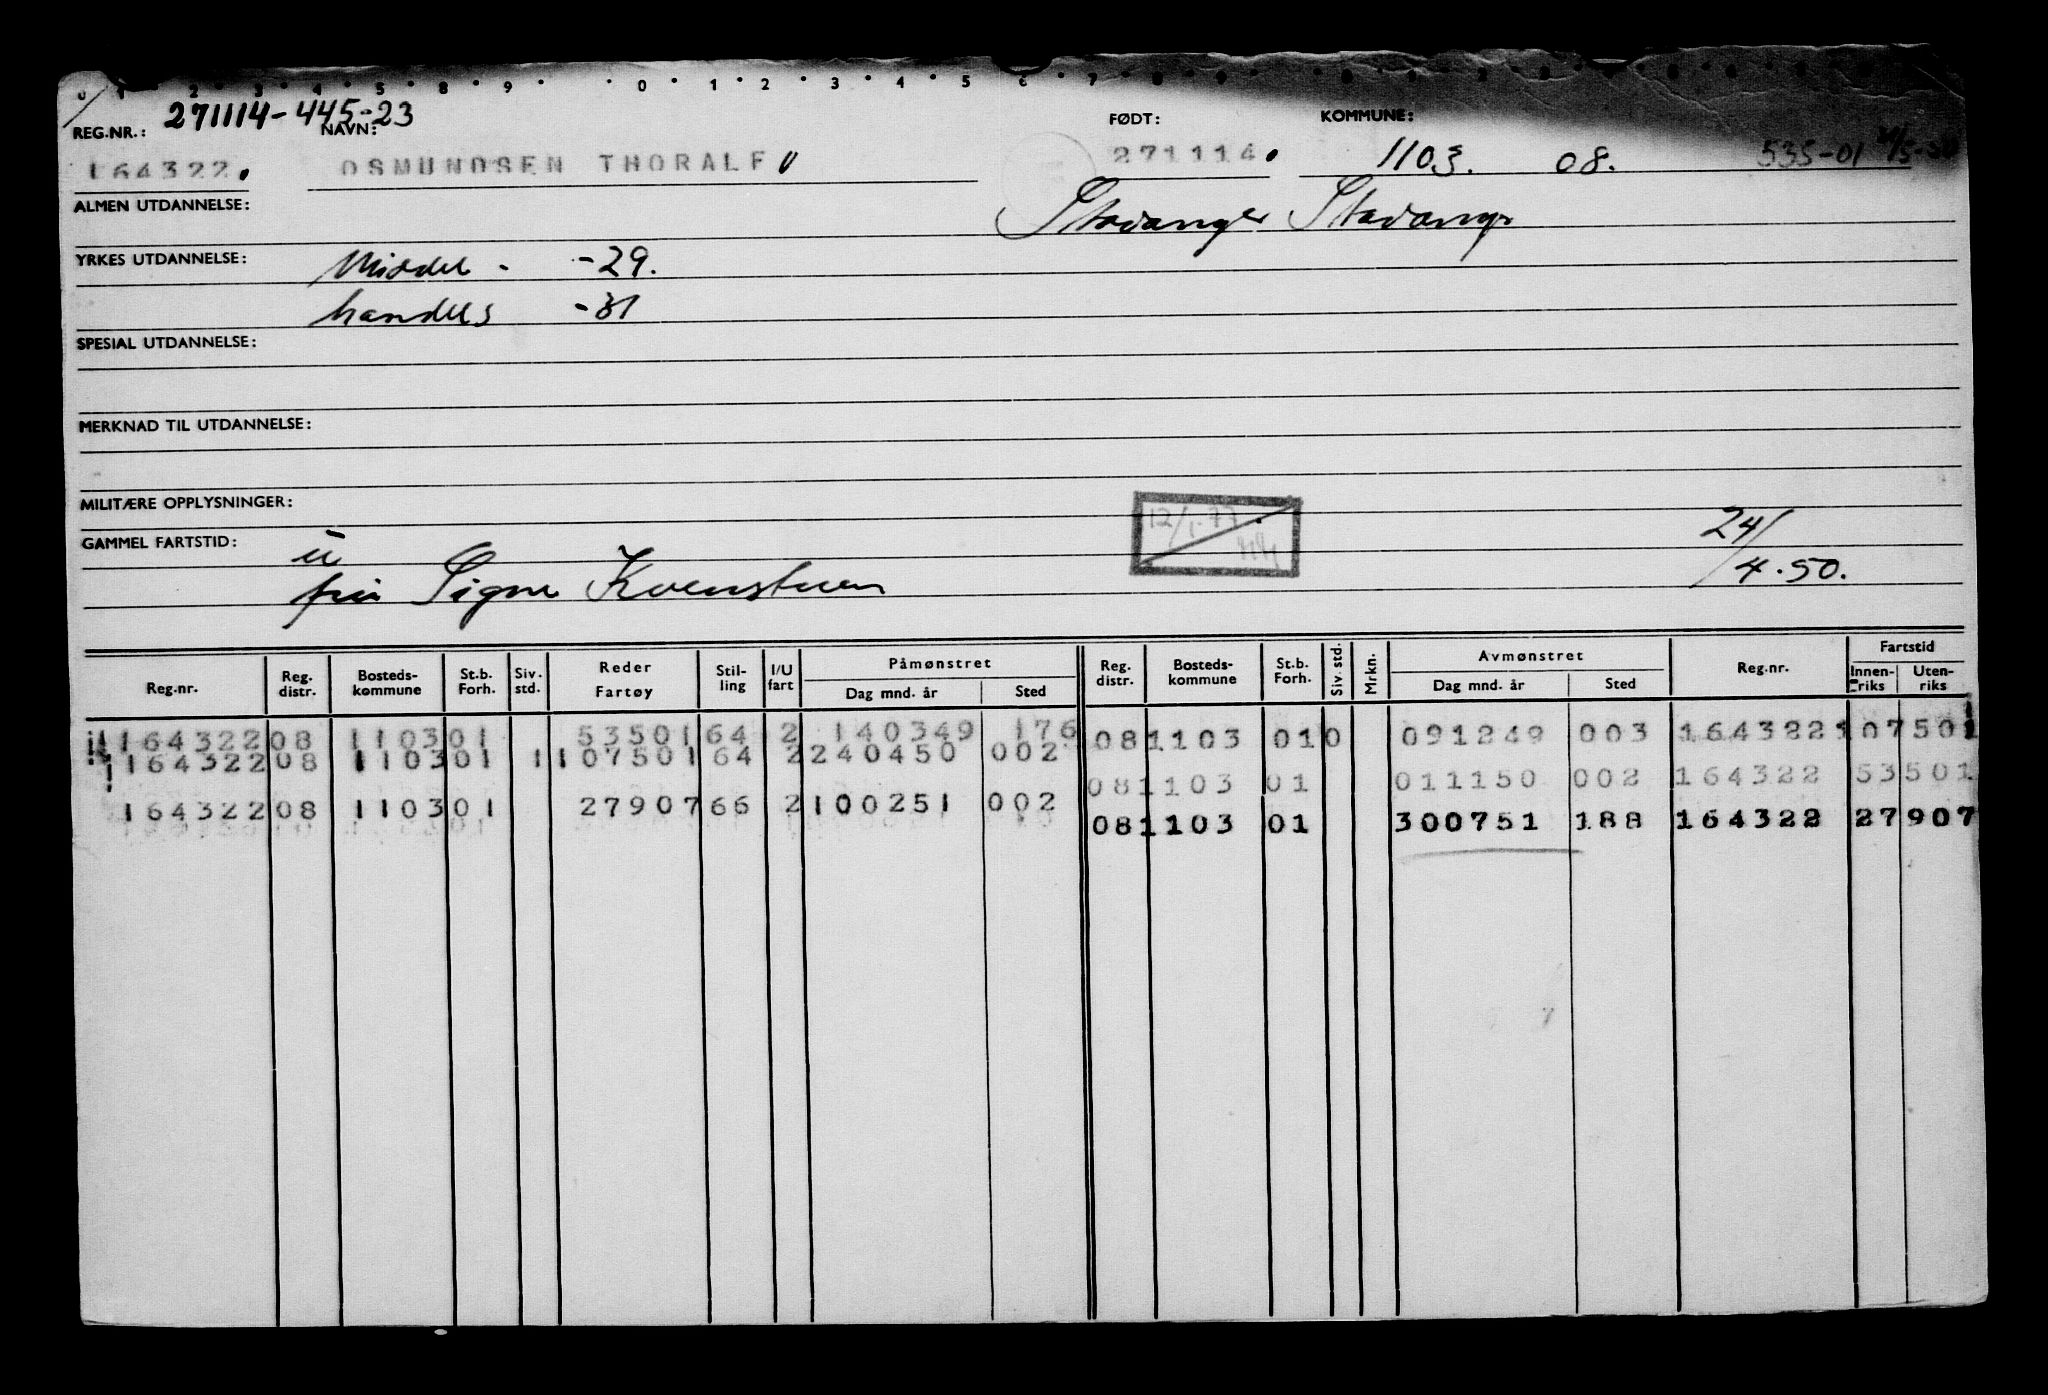 0 1 2 3 4 5 8 9 0 1 2 3 4 5 6 7 8 9
REG.NR.: 271114-445-23 NAVN: FØDT: KOMMUNE:
164322. OSMUNDSEN THORALF 271114. 1103. 08. 535-01
ALMEN UTDANNELSE: Stavanger Stavanger
YRKES UTDANNELSE: Middel - -29.
handels -31
SPESIAL UTDANNELSE:
MERKNAD TIL UTDANNELSE:
MILITÆRE OPPLYSNINGER: 12/1-77 24/
GAMMEL FARTSTID: u 4.50.
fru Signe
Reg.nr. Reg. distr. Bosteds-kommune St.b. Forh. Siv. std. Reder Fartøy Stil-ling I/U fart Påmønstret Dag mnd. år Sted Reg. distr. Bosteds-kommune St.b. Forh. Siv. std. Mrkn. Avmønstret Dag mnd. år Sted Reg.nr. Fartstid Innen-riks Uten-riks
164322 08 1103 01 53501 64 2 140349 176 08 1103 01 0 091249 003 164322 107501
164322 08 1103 01 1 107501 64 2 240450 002 08 1103 01 011150 002 164322 53501
164322 08 1103 01 27907 66 2 100251 002 08 1103 01 300751 188 164322 27907